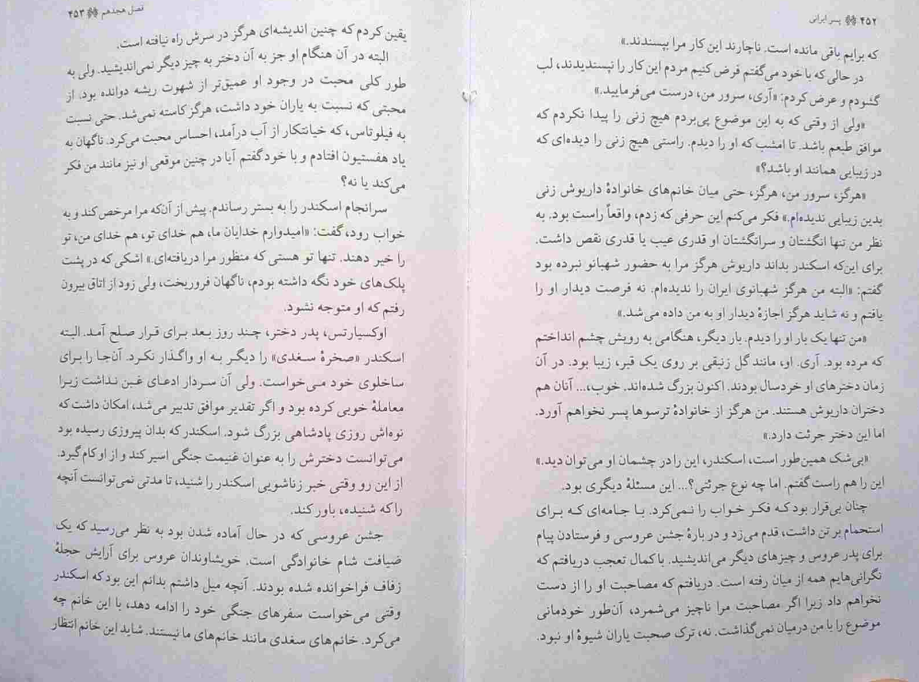 ۴۵۲ پسر ایرانی
که برایم باقی مانده است. ناچارند این کار مرا بپسندند.»
در حالی که با خود می‌گفتم فرض کنیم مردم این کار را نپسندیدند، لب
گشودم و عرض کردم: «آری، سرور من، درست می‌فرمایید.»
«ولی از وقتی که به این موضوع پی‌بردم هیچ زنی را پیدا نکردم که
موافق طبعم باشد. تا امشب که او را دیدم. راستی هیچ زنی را دیده‌ای که
در زیبایی همانند او باشد؟»
«هرگز، سرور من، هرگز، حتی میان خانم‌های خانوادهٔ داریوش زنی
بدین زیبایی ندیده‌ام.» فکر می‌کنم این حرفی که زدم، واقعاً راست بود. به
نظر من تنها انگشتان و سرانگشتان او قدری عیب یا قدری نقص داشت.
برای این‌که اسکندر بداند داریوش هرگز مرا به حضور شهبانو نبرده بود
گفتم: «البته من هرگز شهبانوی ایران را ندیده‌ام. نه فرصت دیدار او را
یافتم و نه شاید هرگز اجازهٔ دیدار او به من داده می‌شد.»
«من تنها یک بار او را دیدم. بار دیگر، هنگامی به رویش چشم انداختم
که مرده بود. آری. او، مانند گل زنبقی بر روی یک قبر، زیبا بود. در آن
زمان دخترهای او خردسال بودند. اکنون بزرگ شده‌اند. خوب،... آنان هم
دختران داریوش هستند. من هرگز از خانوادهٔ ترسوها پسر نخواهم آورد.
اما این دختر جرئت دارد.»
«بی‌شک همین‌طور است، اسکندر، این را در چشمان او می‌توان دید.»
این را هم راست گفتم. اما چه نوع جرئتی؟... این مسئلهٔ دیگری بود.
چنان بی‌قرار بود که فکر خواب را نمی‌کرد. با جامه‌ای که برای
استحمام بر تن داشت، قدم می‌زد و در بارهٔ جشن عروسی و فرستادن پیام
برای پدر عروس و چیزهای دیگر می‌اندیشید. با کمال تعجب دریافتم که
نگرانی‌هایم همه از میان رفته است. دریافتم که مصاحبت او را از دست
نخواهم داد زیرا اگر مصاحبت مرا ناچیز می‌شمرد، آن‌طور خودمانی
موضوع را با من درمیان نمی‌گذاشت. نه، ترک صحبت یاران شیوهٔ او نبود.
فصل هجدهم ۴۵۳
یقین کردم که چنین اندیشه‌ای هرگز در سرش راه نیافته است.
البته در آن هنگام او جز به آن دختر به چیز دیگر نمی‌اندیشید. ولی به
طور کلی محبت در وجود او عمیق‌تر از شهوت ریشه دوانده بود. از
محبتی که نسبت به یاران خود داشت، هرگز کاسته نمی‌شد. حتی نسبت
به فیلوتاس، که خیانتکار از آب درآمد، احساس محبت می‌کرد. ناگهان به
یاد هفستیون افتادم و با خود گفتم آیا در چنین موقعی او نیز مانند من فکر
می‌کند یا نه؟
سرانجام اسکندر را به بستر رساندم. پیش از آن‌که مرا مرخص کند و به
خواب رود، گفت: «امیدوارم خدایان ما، هم خدای تو، هم خدای من، تو
را خیر دهند. تنها تو هستی که منظور مرا دریافته‌ای.» اشکی که در پشت
پلک‌های خود نگه داشته بودم، ناگهان فروریخت، ولی زود از اتاق بیرون
رفتم که او متوجه نشود.
اوکسیارتس، پدر دختر، چند روز بعد برای قرار صلح آمد. البته
اسکندر «صخرهٔ سغدی» را دیگر به او واگذار نکرد. آن‌جا را برای
ساخلوی خود می‌خواست. ولی آن سردار ادعای غبن نداشت زیرا
معاملهٔ خوبی کرده بود و اگر تقدیر موافق تدبیر می‌شد، امکان داشت که
نوه‌اش روزی پادشاهی بزرگ شود. اسکندر که بدان پیروزی رسیده بود
می‌توانست دخترش را به عنوان غنیمت جنگی اسیر کند و از او کام گیرد.
از این رو وقتی خبر زناشویی اسکندر را شنید، تا مدتی نمی‌توانست آنچه
را که شنیده، باور کند.
جشن عروسی که در حال آماده شدن بود به نظر می‌رسید که یک
ضیافت شام خانوادگی است. خویشاوندان عروس برای آرایش حجلهٔ
زفاف فراخوانده شده بودند. آنچه میل داشتم بدانم این بود که اسکندر
وقتی می‌خواست سفرهای جنگی خود را ادامه دهد، با این خانم چه
می‌کرد. خانم‌های سغدی مانند خانم‌های ما نیستند. شاید این خانم انتظار